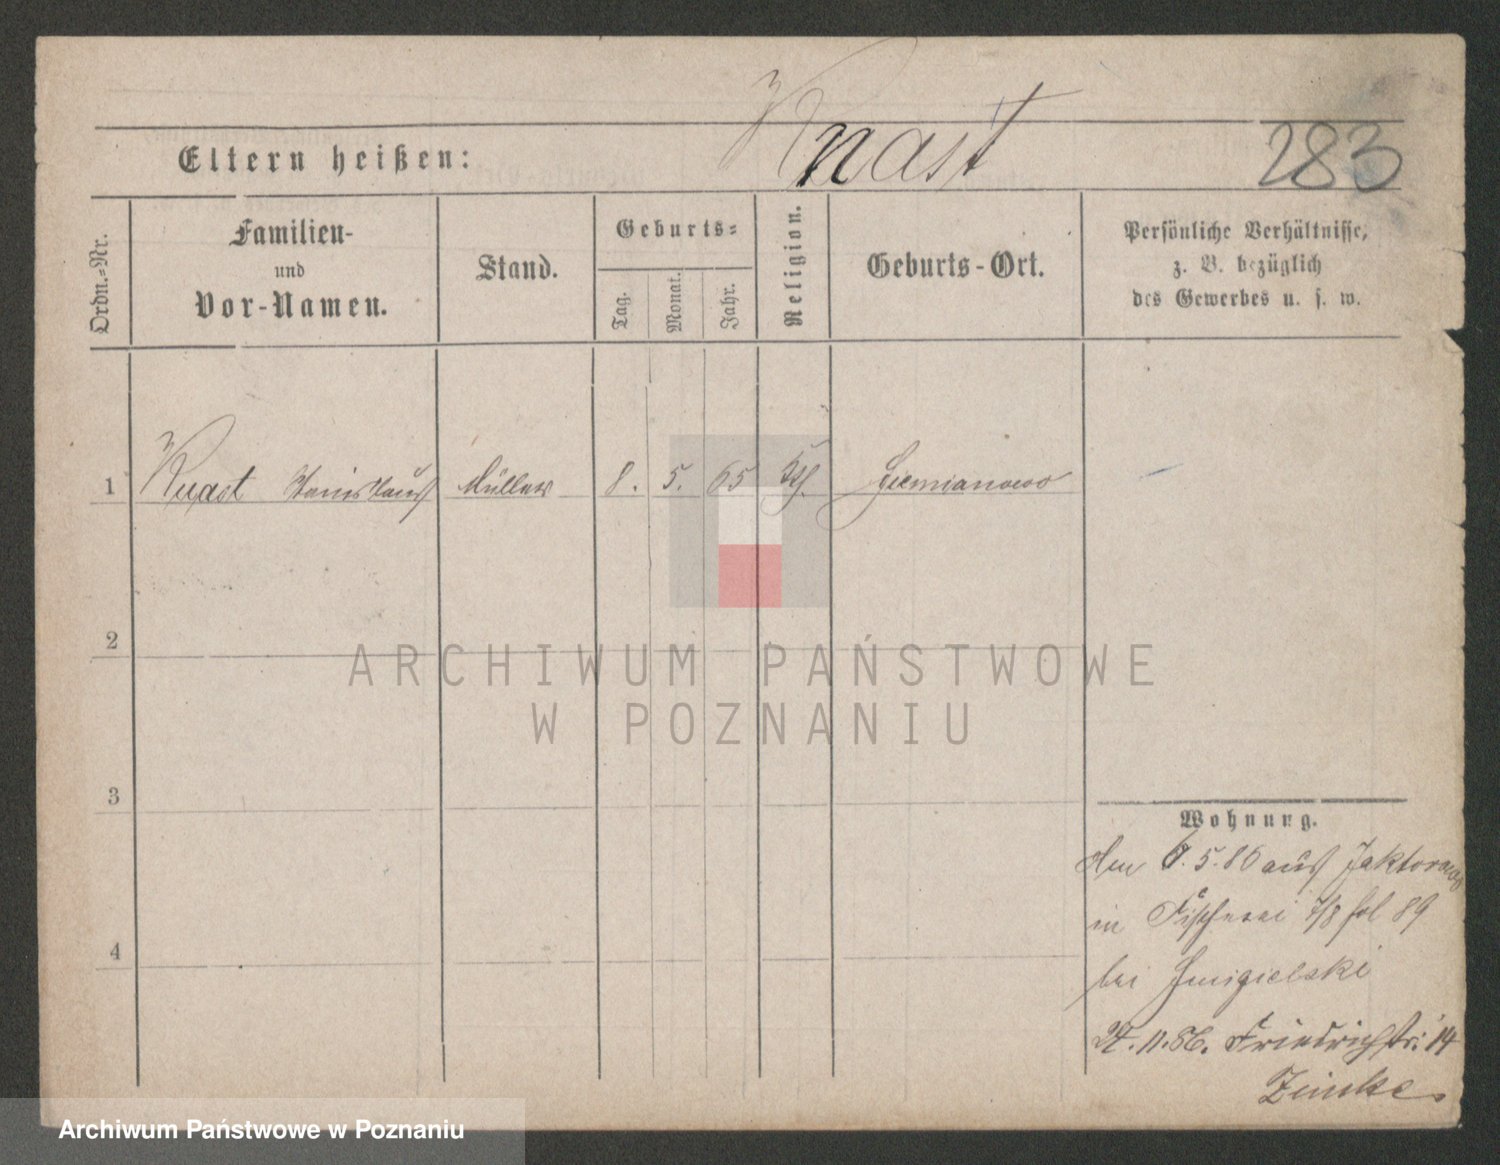 Knast
Eltern heißen:
283
Ordn.=Nr.
Familien-
und
Vor-Namen.
Stand.
Geburts=
Tag.
Monat.
Jahr.
Religion.
Geburts-Ort.
Persönliche Verhältnisse,
z. B. bezüglich
des Gewerbes u. s. w.
1
Knast Stanislaus
Müller
8.
5.
65
kth.
2
3
4
ARCHIWUM PAŃSTWOWE
W POZNANIU
Wohnung.
den 6.5.86 aus Jaktorowo
in Fischerei 7/8 fol 89
bei Smigielski
11.86. Friedrichstr. 14
Zimke.
Archiwum Państwowe w Poznaniu